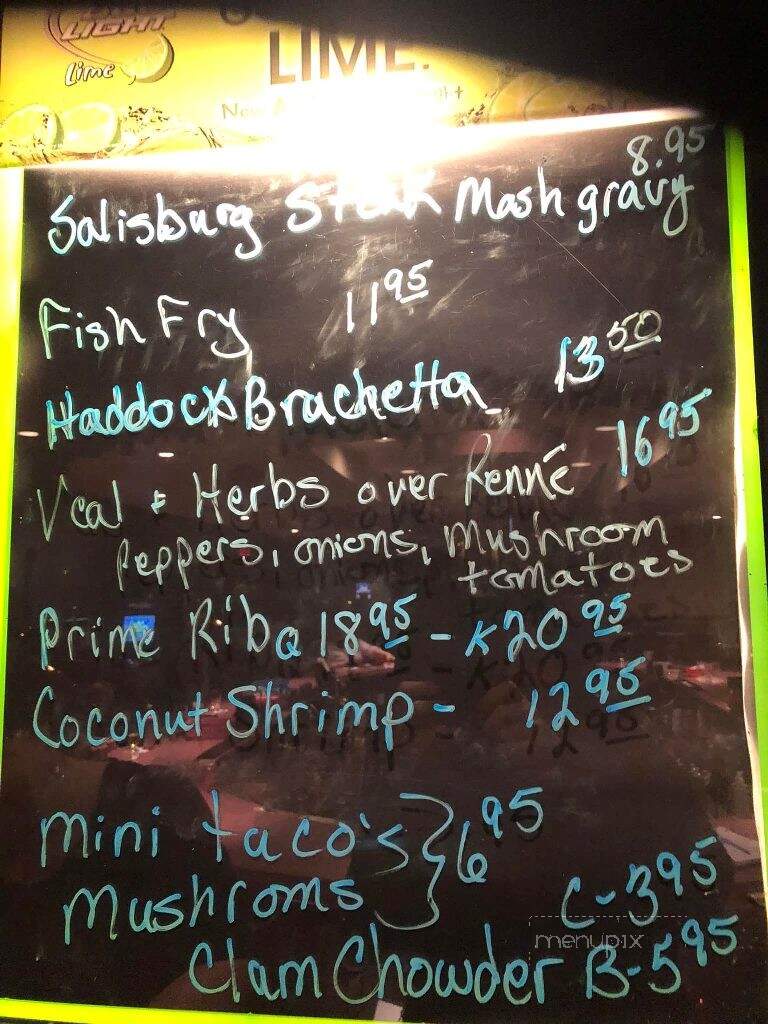 LIGHT
Lime
LIME.
8.95
Salisburg Steak Mash gravy
Fish Fry 11 95
Haddock Brachetta 13 50
Veal & Herbs over Penné 16 95
Peppers, onions, mushroom
tomatoes
Prime Rib Q 18 95 - K 20 95
Coconut Shrimp - 12 95
mini taco's } 6 95
mushroms
C-3 95
Clam Chowder B-5 95
menupix